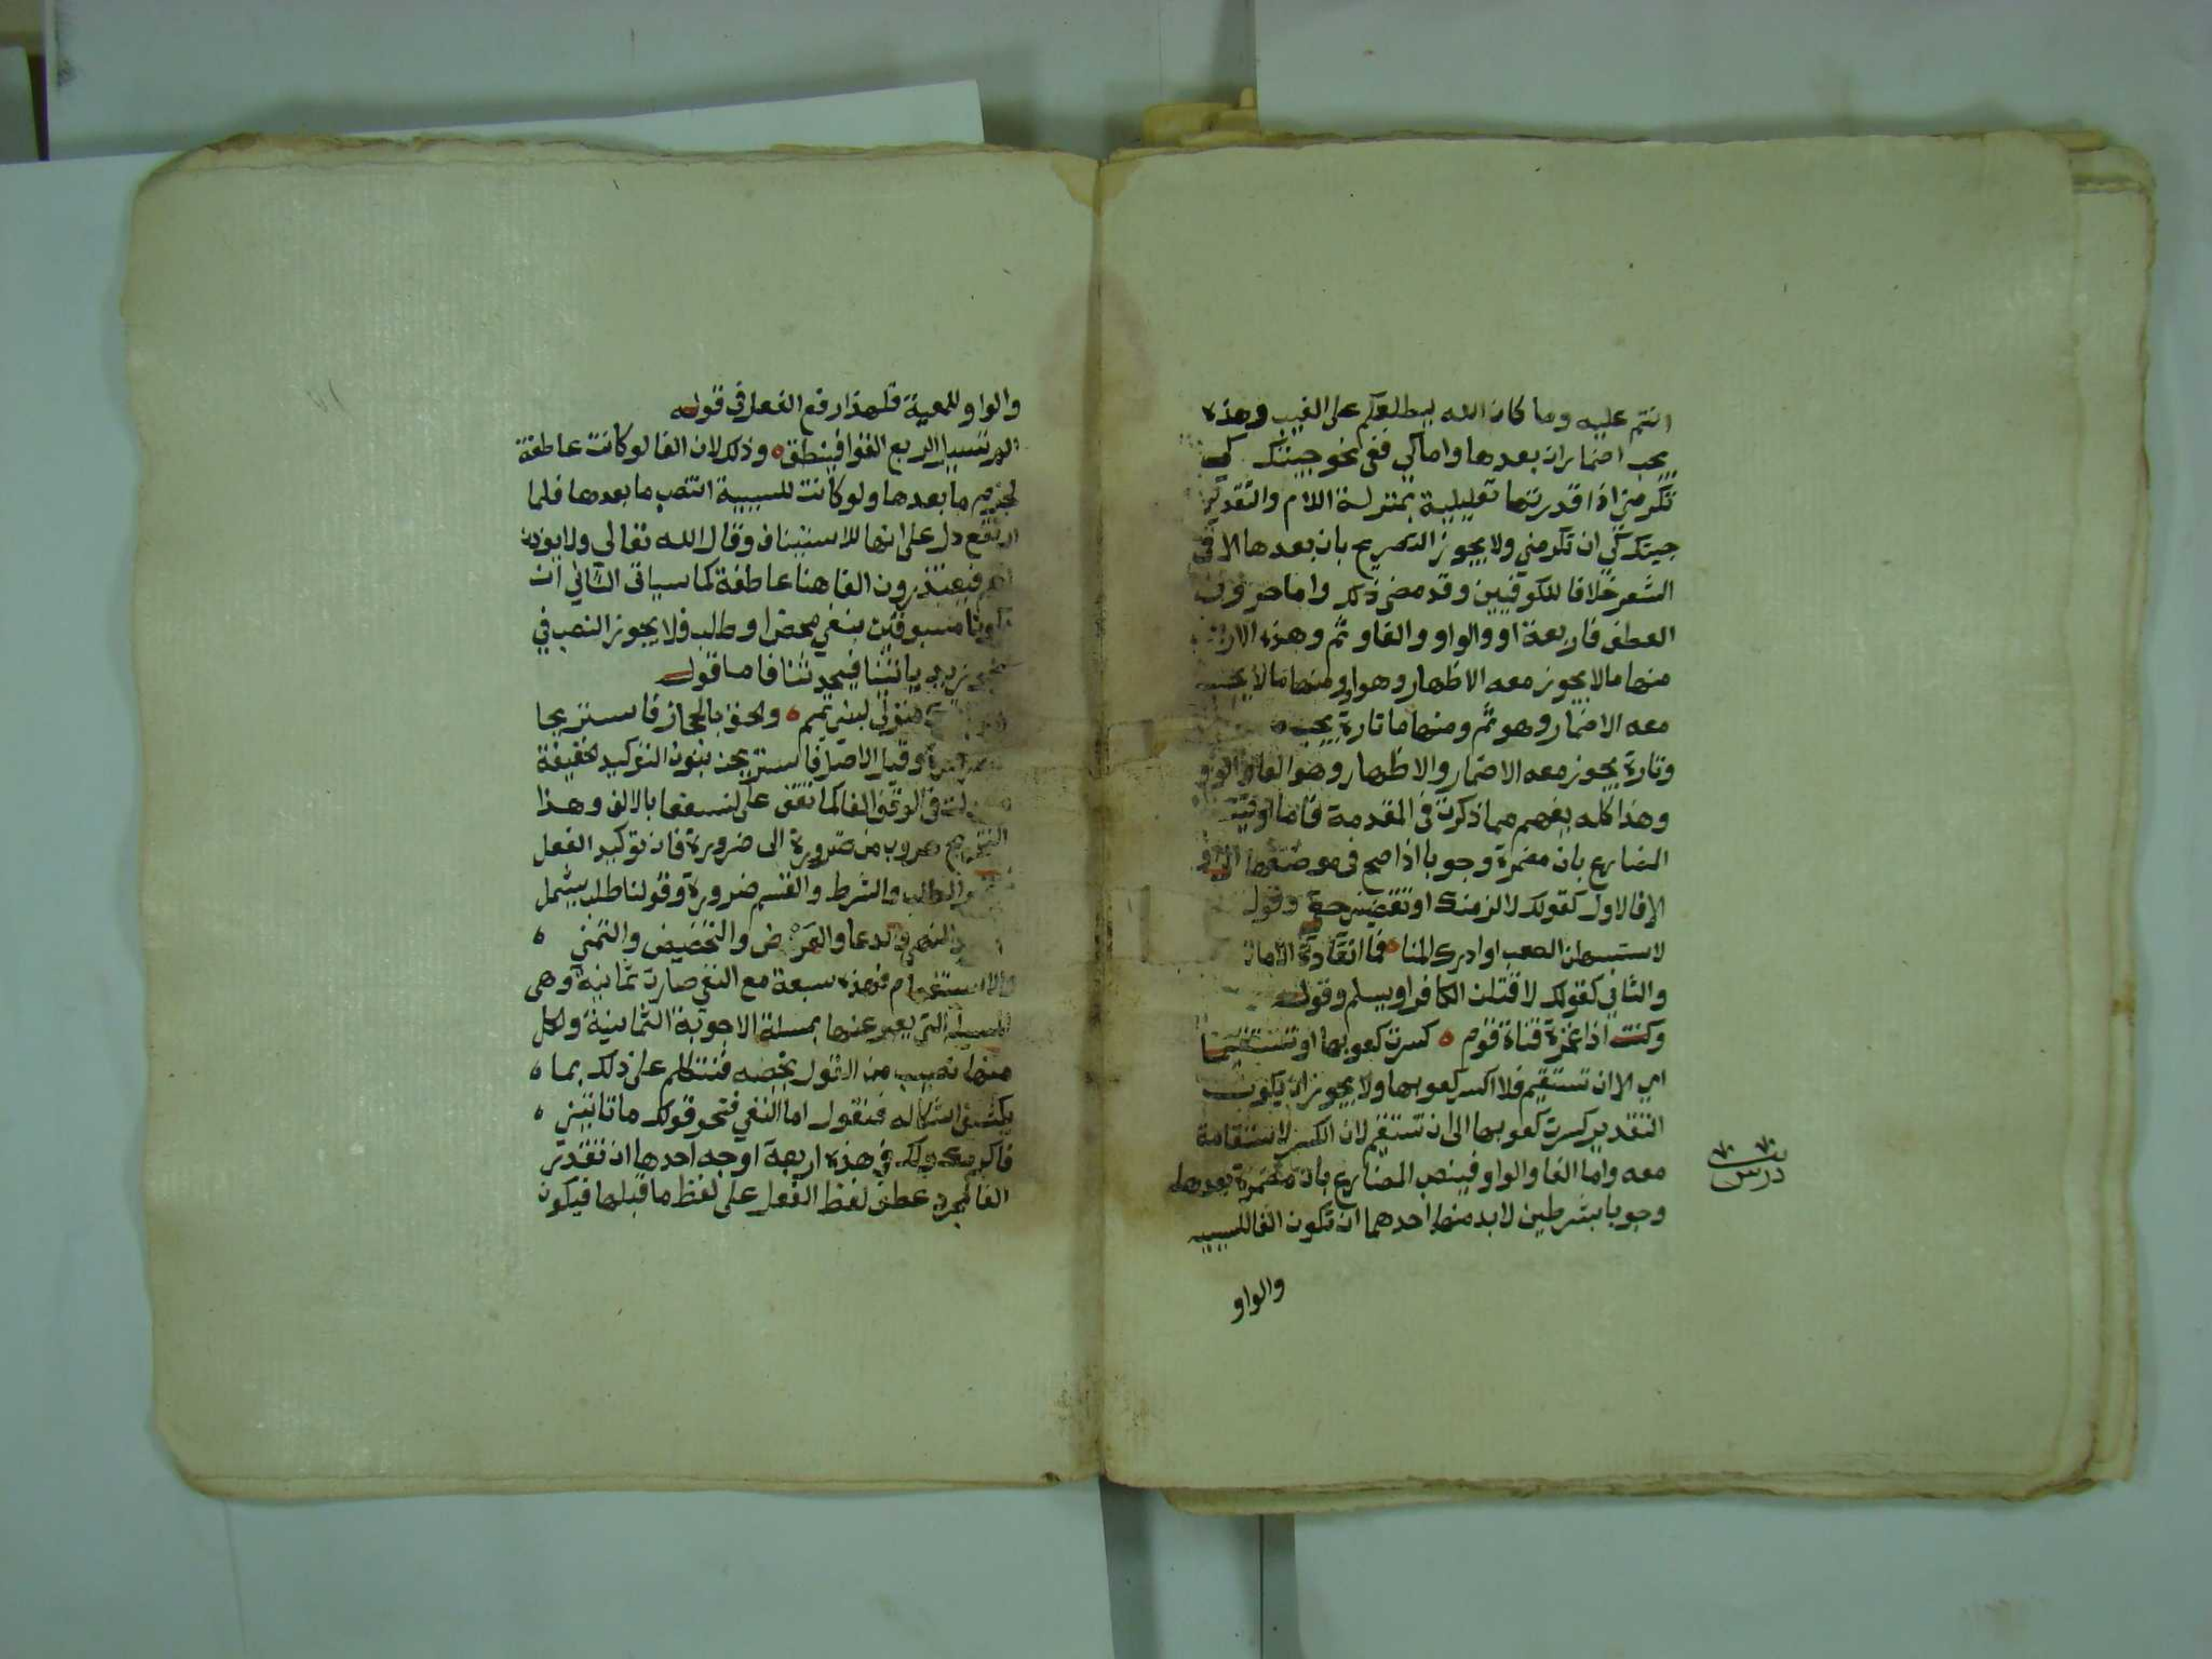 انتم عليه وما كان الله ليطلعكم على الغيب وهذه
يجب اضمار ان بعدها واما كي ففي نحو جيتك كي
تكرمني اذا قدرتها تعليلية بمنزلة اللام والتقدير
جيتك كي ان تكرمني ولا يجوز التصريح بان بعدها الا في
الشعر خلافا للكوفيين وقد مضى ذلك واما حروف
العطف فاربعة او والواو والفا وثم وهذه
منها ما لا يجوز معه الاظهار وهو او ومنها ما لا يجب
معه الاضمار وهو ثم ومنها ما تارة يجب
وتارة يجوز معه الاضمار والاظهار وهو الفا والواو
وهذا كله يفهم مما ذكرت في المقدمة فاما او
المضارع بان مضمرة وجوبا اذا صح في موضعها الى او
الا فالاول كقولك لالزمنك او تقضيني حقي وقوله
لاستسهلن الصعب او ادرك المنا فما انقادة الامال
والثاني كقولك لاقتلن الكافر او يسلم وقوله
وكنت اذا غمزة قناة قوم كسرت كعوبها او تستقيما
اي الا ان تستقيم فلا اكسر كعوبها ولا يجوز ان يكون
التقدير كسرت كعوبها الى ان تستقيم لان الكسر لا استقامة
معه واما الفا والواو فينصب المضارع بان مضمرة بعدها
وجوبا بشرطين لابد منها احدهما ان تكون الفا للسببيه
والواو
درس
والواو للمعية فلهذا رفع الفعل في قوله
الم تسيل الربع القوا فينطق وذلك لان الفا لو كانت عاطفة
لجزم ما بعدها ولو كانت للسببية انتصب ما بعدها فلما
ارتفع دل على انها للاستيناف وقال الله تعالى ولا يوذن
لهم فيعتذرون الفا هنا عاطفة كما سياتي الثاني ان
يكونا مسبوقين بنفي محض او طلب فلا يجوز النصب في
نحو زيد ياتينا فيحدثنا فاما قوله
منزلي لبني تميم والحق بالحجاز فاستريحا
وقيل الاصل فاستريحن بنون التوكيد الخفيفة
في الوقف الفا كما تقف على لنسفعا بالالف وهذا
التخريج هروب من ضرورة الى ضرورة فان توكيد الفعل
والطلب والشرط والقسم ضرورة وقولنا طلب يشمل
والنهي والدعا والعرض والتحضيض والتمني
والاستفهام فهذه سبعة مع النفي صارت ثمانية وهي
المسيلة التي يعبر عنها بمسلة الاجوبة الثمانية ولكل
منها نصيب من القول يخصه فنتكلم على ذلك بما
يكشف اشكاله فنقول اما النفي فنحو قولك ما تاتيني
فاكرمك ولك في هذه اربعة اوجه احدها ان تقدر
الفا لمجرد عطف لفظ الفعل على لفظ ما قبلها فيكون